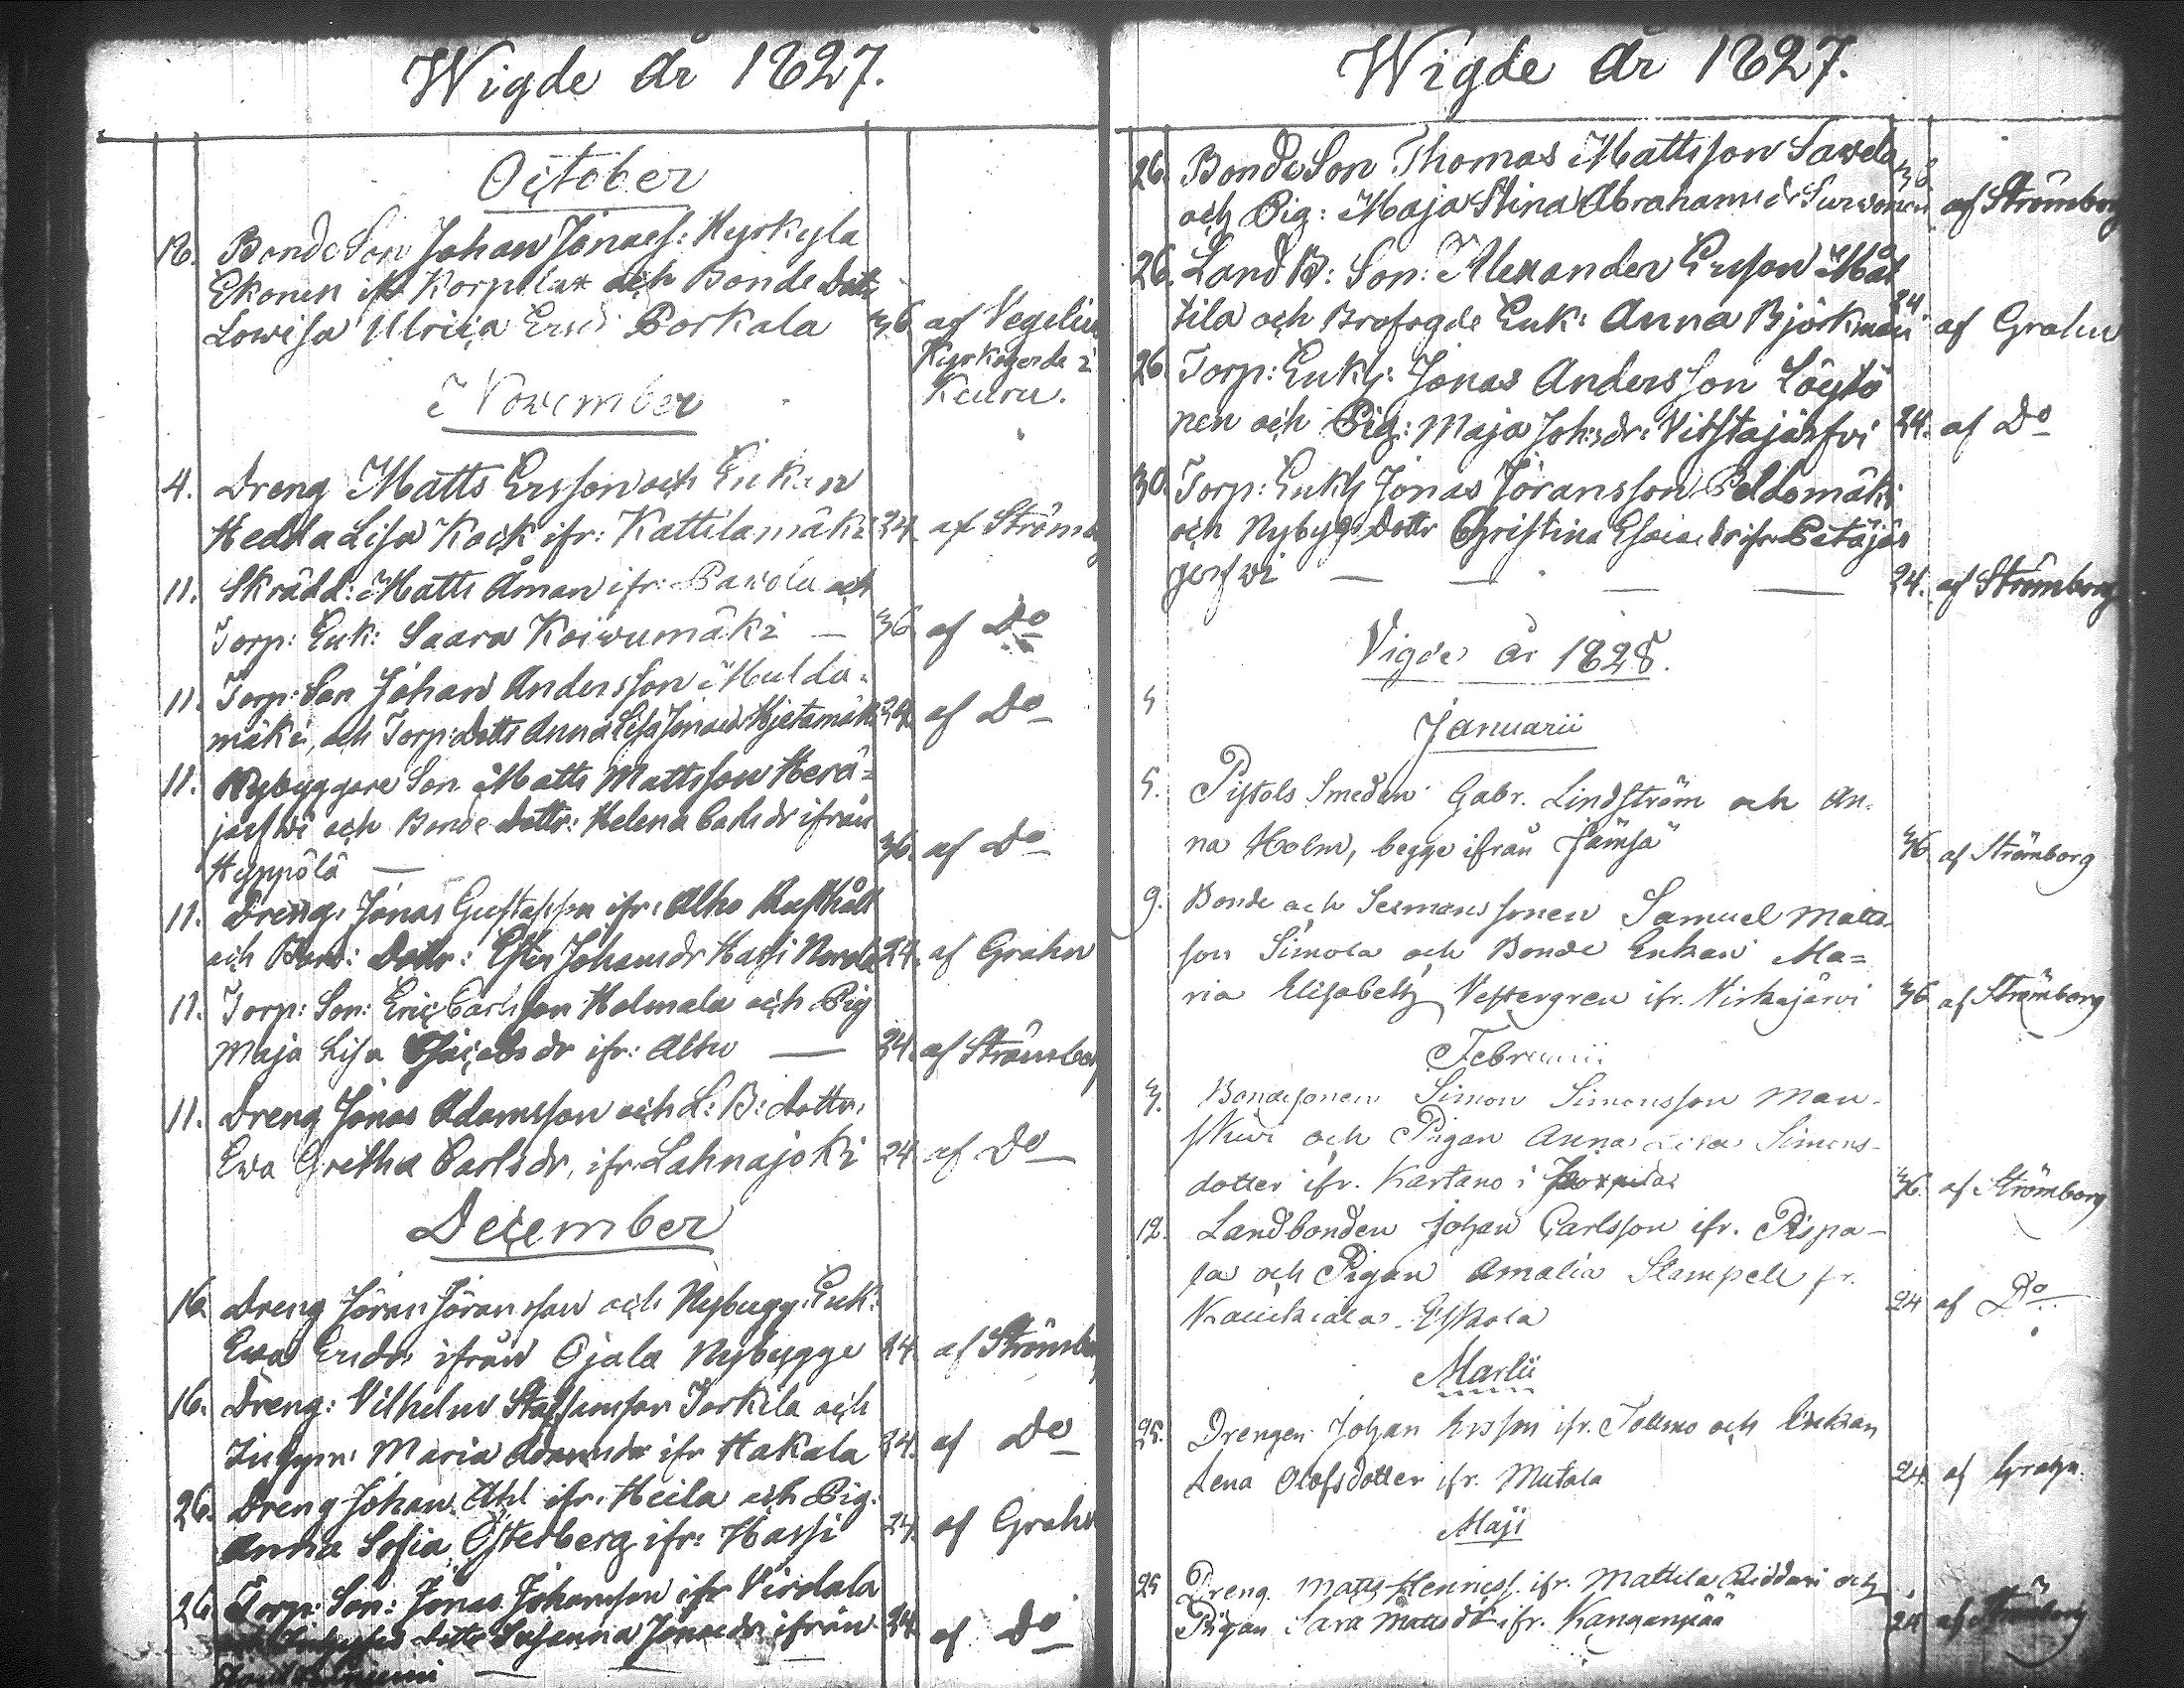 Wigde År 1827.
October
18. Bonde Son Johan Jonaes: Hyrkyla
Ekonen ifr Korpilax och Bonde Dott:
Lowisa Ulrica Ersd: Porkala 36 af Vegelius
Kyrkoherde i
Keuru.
November
4. Dreng Matts Ersson och Enkan
Hedda Lisa Kock ifr: Kattilamäki 24. af Strömb
11. Skrädd: Matts Åman ifr: Pawola och
Torp: Enk: Saara Koiwumäki — 36 af Do
11. Torp: Son Johan Andersson Multa-
mäki, och Torp: Dottr Anna Lisa Jonaed Hietamäki 24. af Do
11. Nybyggare Son Matts Mattsson Herä-
jerfwi och Bonde Dottr: Helena Carlsdr ifrån
Hyppölä — 36. af Do
11. Dreng: Jonas Gustafsson ifr: Alho Rusthåll
och Bond: Dottr: Ester Johansdr Hassi Norola 24. af Grahn
11. Torp: Son: Eric Carlsson Holmala och Pig
Maja Lisa Jacobsdr ifr: Alho — 24. af Strömbor
11. Dreng Jonas Adamsson och L: B: Dottr:
Ewa Gretha Carlsdr, ifr: Lahnajoki 24 af Do
December
16. Dreng Jöran Jöransson och Nybygg: Enk:
Ewa Ersdr ifrån Ojala Nybygge 24. af Strömbo
16. Dreng: Vilhelm Staffansson Torkila och
Maria Adamsdr ifr Hakala 24. af Do
26. Dreng Johan Ahl ifr: Heila och Pig:
Anna Sofia Österberg ifr: Hassi 24. af Grahn
26. Torp: Son: Jonas Johansson ifr Virdala
och Dottr Susanna Jonaedr ifrån 24 af Do
Wigde År 1827.
26. Bonde Son Thomas Mattsson Sawela 36
och Pig: Maja Stina Abrahamsdr Surwonen af Strömborg
26. Land B: Son: Alexander Ersson Mat
tila och Brofogde Enk: Anna Björkman 24 af Grahn
26. Torp: Enkl: Jonas Andersson Löytö
nen och Pig: Maja Joh:dr: Vitstajärfvi 24. af Do
30. Torp: Enkl Jonas Jöransson Peldomäki
och Nybygg: Dottr Christina Esaiaedr ifr: Petäjä
jerfwi — — — — 24. af Strömborg
Vigde år 1828.
Januarii
5. Pistols Smeden Gabr. Lindström och An-
na Holm, begge ifrån Jämsä 36 af Strömborg
9. Bonde och Sexmans sonen Samuel Matts-
son Simola och Bonde Enkan Ma=
ria Elisabeth Vestergren ifr. Virkajärvi 36 af Strömborg
Februarii
3. Bondesonen Simon Simonsson Man-
skivi och Pigan Anna Lisa Simons-
dotter ifr. Kartano i Korpilax 36. af Strömborg
12. Landbonden Johan Carlsson ifr. Pispa-
la och Pigan Amalia Stampell fr.
Kauhiala Eskola 24 af Do
Martii
25. Drengen Johan Ersson ifr. Tolimo och Enkan
Lena Olofsdotter ifr. Mutala 24. af Grahn
Maji
25 Dreng. Matts Henricss. ifr. Mattila Riddari och
Pigan Sara Mattsdr ifr. Kangaspää 24 af Strömborg